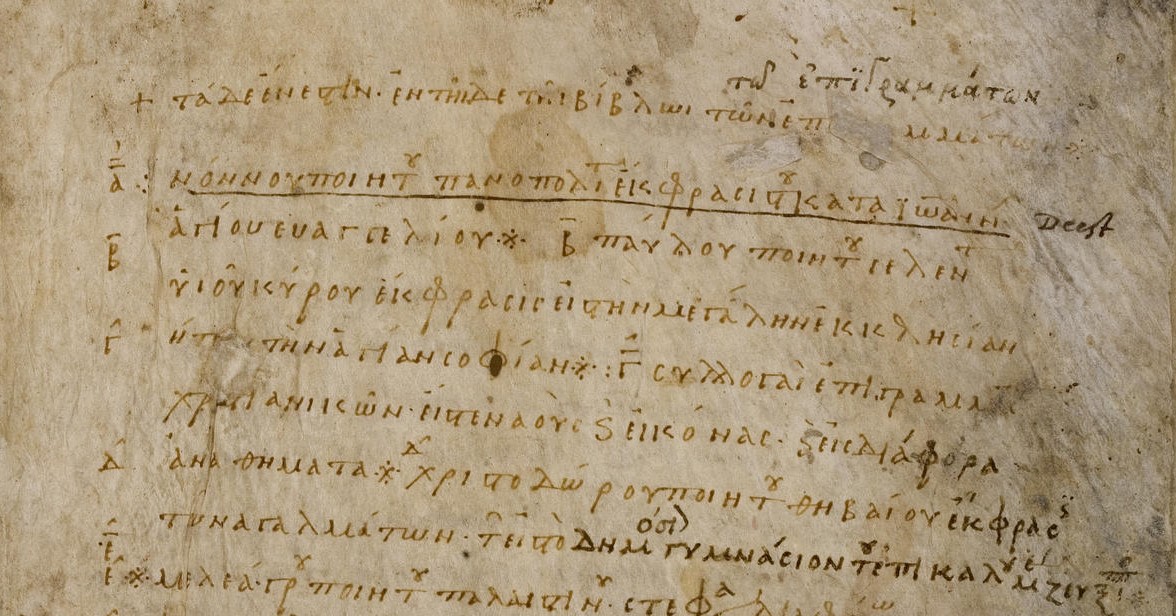 τῶν ἐπιγραμμάτων
+ τάδε ἔνεστιν· ἐν τῆιδε τῆι βίβλωι τῶν ἐπ μμάτων
α νόννου ποιητ πανοπολίτ ἔκφρασις τ κατὰ ἰωάννην Deest
ἁγίου εὐαγγελίου·⁜ β παύλου ποιητ σελεντ
β
υἱοῦ κύρου ἔκφρασις εἰς τὴν μεγάλην ἐκκλησίαν
γ ἤτ τὴν ἁγίαν σοφίαν⁜: γ συλλογαὶ ἐπιγραμμ
χριστιανικῶν· εἴς τε ναοὺς ϛ εἰκόνας· ϛ εἰς διάφορα
δ ἀναθήματα⁜ δ χριστοδώρου ποιητ θηβαίου ἔκφρασ
τῶν ἀγαλμάτων· τ εἰς τὸ δημόσι γυμνάσιον τ ἐπικαλουμ ζευξίππ
ε
ε ⁜ μελεάγρ ποιητ παλαιστίν· στεφα